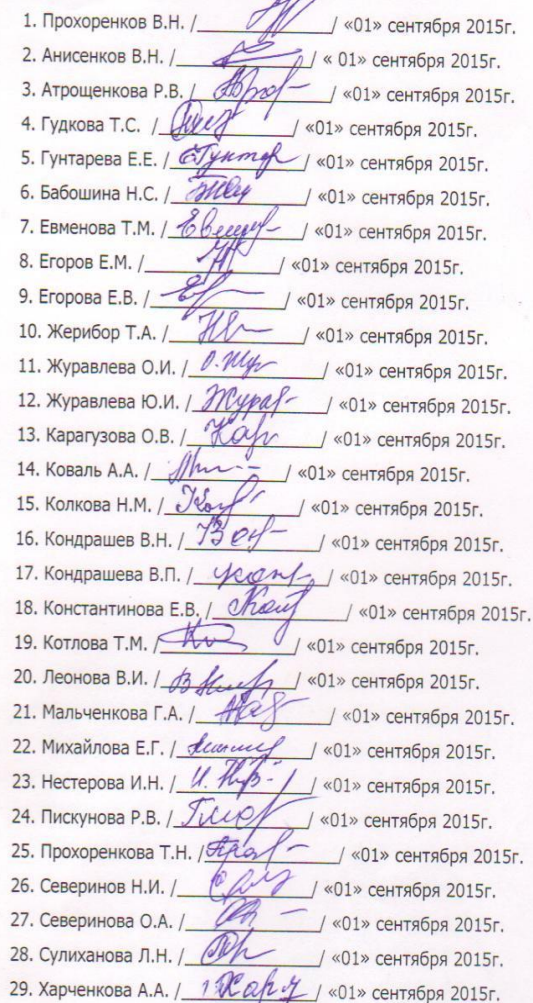 1. Прохоренков В.Н. /____________/ «01» сентября 2015г.
2. Анисенков В.Н. /____________/ « 01» сентября 2015г.
3. Атрощенкова Р.В. /____________/ «01» сентября 2015г.
4. Гудкова Т.С. /____________/ «01» сентября 2015г.
5. Гунтарева Е.Е. /____________/ «01» сентября 2015г.
6. Бабошина Н.С. /____________/ «01» сентября 2015г.
7. Евменова Т.М. /____________/ «01» сентября 2015г.
8. Егоров Е.М. /____________/ «01» сентября 2015г.
9. Егорова Е.В. /____________/ «01» сентября 2015г.
10. Жерибор Т.А. /____________/ «01» сентября 2015г.
11. Журавлева О.И. /____________/ «01» сентября 2015г.
12. Журавлева Ю.И. /____________/ «01» сентября 2015г.
13. Карагузова О.В. /____________/ «01» сентября 2015г.
14. Коваль А.А. /____________/ «01» сентября 2015г.
15. Колкова Н.М. /____________/ «01» сентября 2015г.
16. Кондрашев В.Н. /____________/ «01» сентября 2015г.
17. Кондрашева В.П. /____________/ «01» сентября 2015г.
18. Константинова Е.В. /____________/ «01» сентября 2015г.
19. Котлова Т.М. /____________/ «01» сентября 2015г.
20. Леонова В.И. /____________/ «01» сентября 2015г.
21. Мальченкова Г.А. /____________/ «01» сентября 2015г.
22. Михайлова Е.Г. /____________/ «01» сентября 2015г.
23. Нестерова И.Н. /____________/ «01» сентября 2015г.
24. Пискунова Р.В. /____________/ «01» сентября 2015г.
25. Прохоренкова Т.Н. /____________/ «01» сентября 2015г.
26. Северинов Н.И. /____________/ «01» сентября 2015г.
27. Северинова О.А. /____________/ «01» сентября 2015г.
28. Сулиханова Л.Н. /____________/ «01» сентября 2015г.
29. Харченкова А.А. /____________/ «01» сентября 2015г.